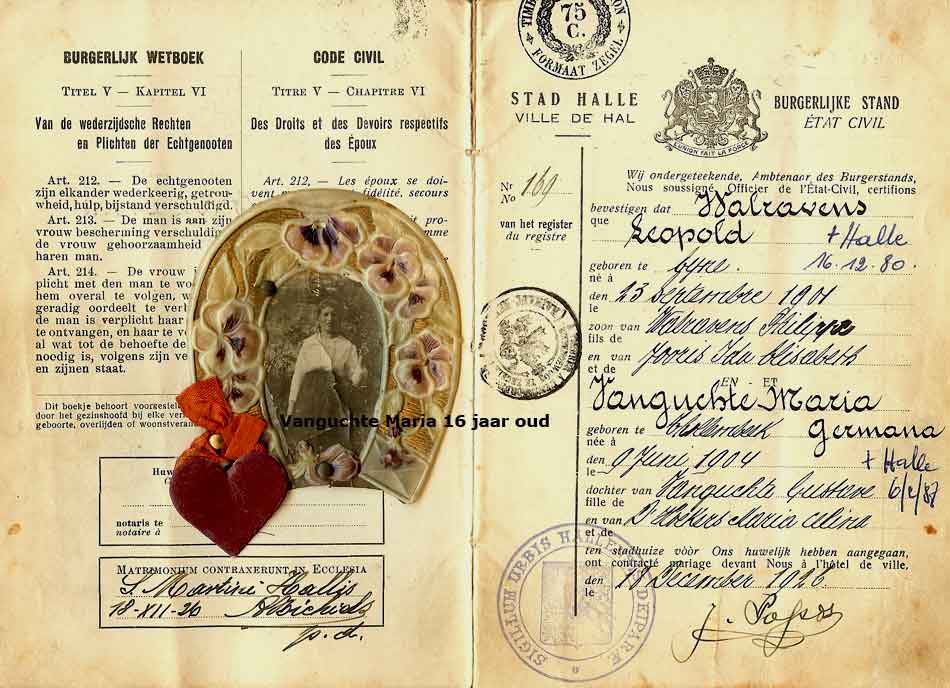 BURGERLIJK WETBOEK
TITEL V — KAPITEL VI
Van de wederzijdsche Rechten
en Plichten der Echtgenooten
Art. 212. — De echtgenooten
zijn elkander wederkeerig, getrou-
wheid, hulp, bijstand verschuldigd.
Art. 213. — De man is aan zijn
vrouw bescherming verschuldigd
de vrouw gehoorzaamheid
haren man.
Art. 214. — De vrouw i
plicht met den man te wo
hem overal te volgen, w
geradig oordeelt te verb
de man is verplicht haar
te ontvangen, en haar te v
al wat tot de behoefte de
noodig is, volgens zijn ve
en zijnen staat.
Dit boekje behoort voorgestel
door het gezinshoofd bij elke ver
geboorte, overlijden of woonstveran
CODE CIVIL
TITRE V — CHAPITRE VI
Des Droits et des Devoirs respectifs
des Époux
Art. 212, — Les époux se doi-
vent fidélité, secours
pro-
mme
Vanguchte Maria 16 jaar oud
Huw
notaris te
notaire à
MATRIMONIUM CONTRAXERUNT IN ECCLESIA
S. Martini Hallis
18-XII-26
p.d.
75
C.
FORMAAT ZEGEL
STAD HALLE
VILLE DE HAL
L'UNION FAIT LA FORCE
BURGERLIJKE STAND
ÉTAT CIVIL
Nr
No 169
van het register
du registre
Wij ondergeteekende, Ambtenaar des Burgerstands,
Nous soussigné, Officier de l'État-Civil, certifions
bevestigen dat Walravens
que Leopold + Halle
geboren te 16-12-80.
né à
den 23 Septembre 1901
le
zoon van Walravens Philippe
fils de
en van Jorris Ida Elisabeth
et de
EN - ET
Vanguchte Maria
Germana
geboren te
née à
den 9 Juni 1904 + Halle
le
dochter van Vanguchte Gustave
fille de
en van Maria Celina
et de
ten stadhuize vòòr Ons huwelijk hebben aangegaan,
ont contracté mariage devant Nous à l'hôtel de ville,
den 18 December 1926
le
SIGILLUM URBIS HALLENSIS DEIPARÆ